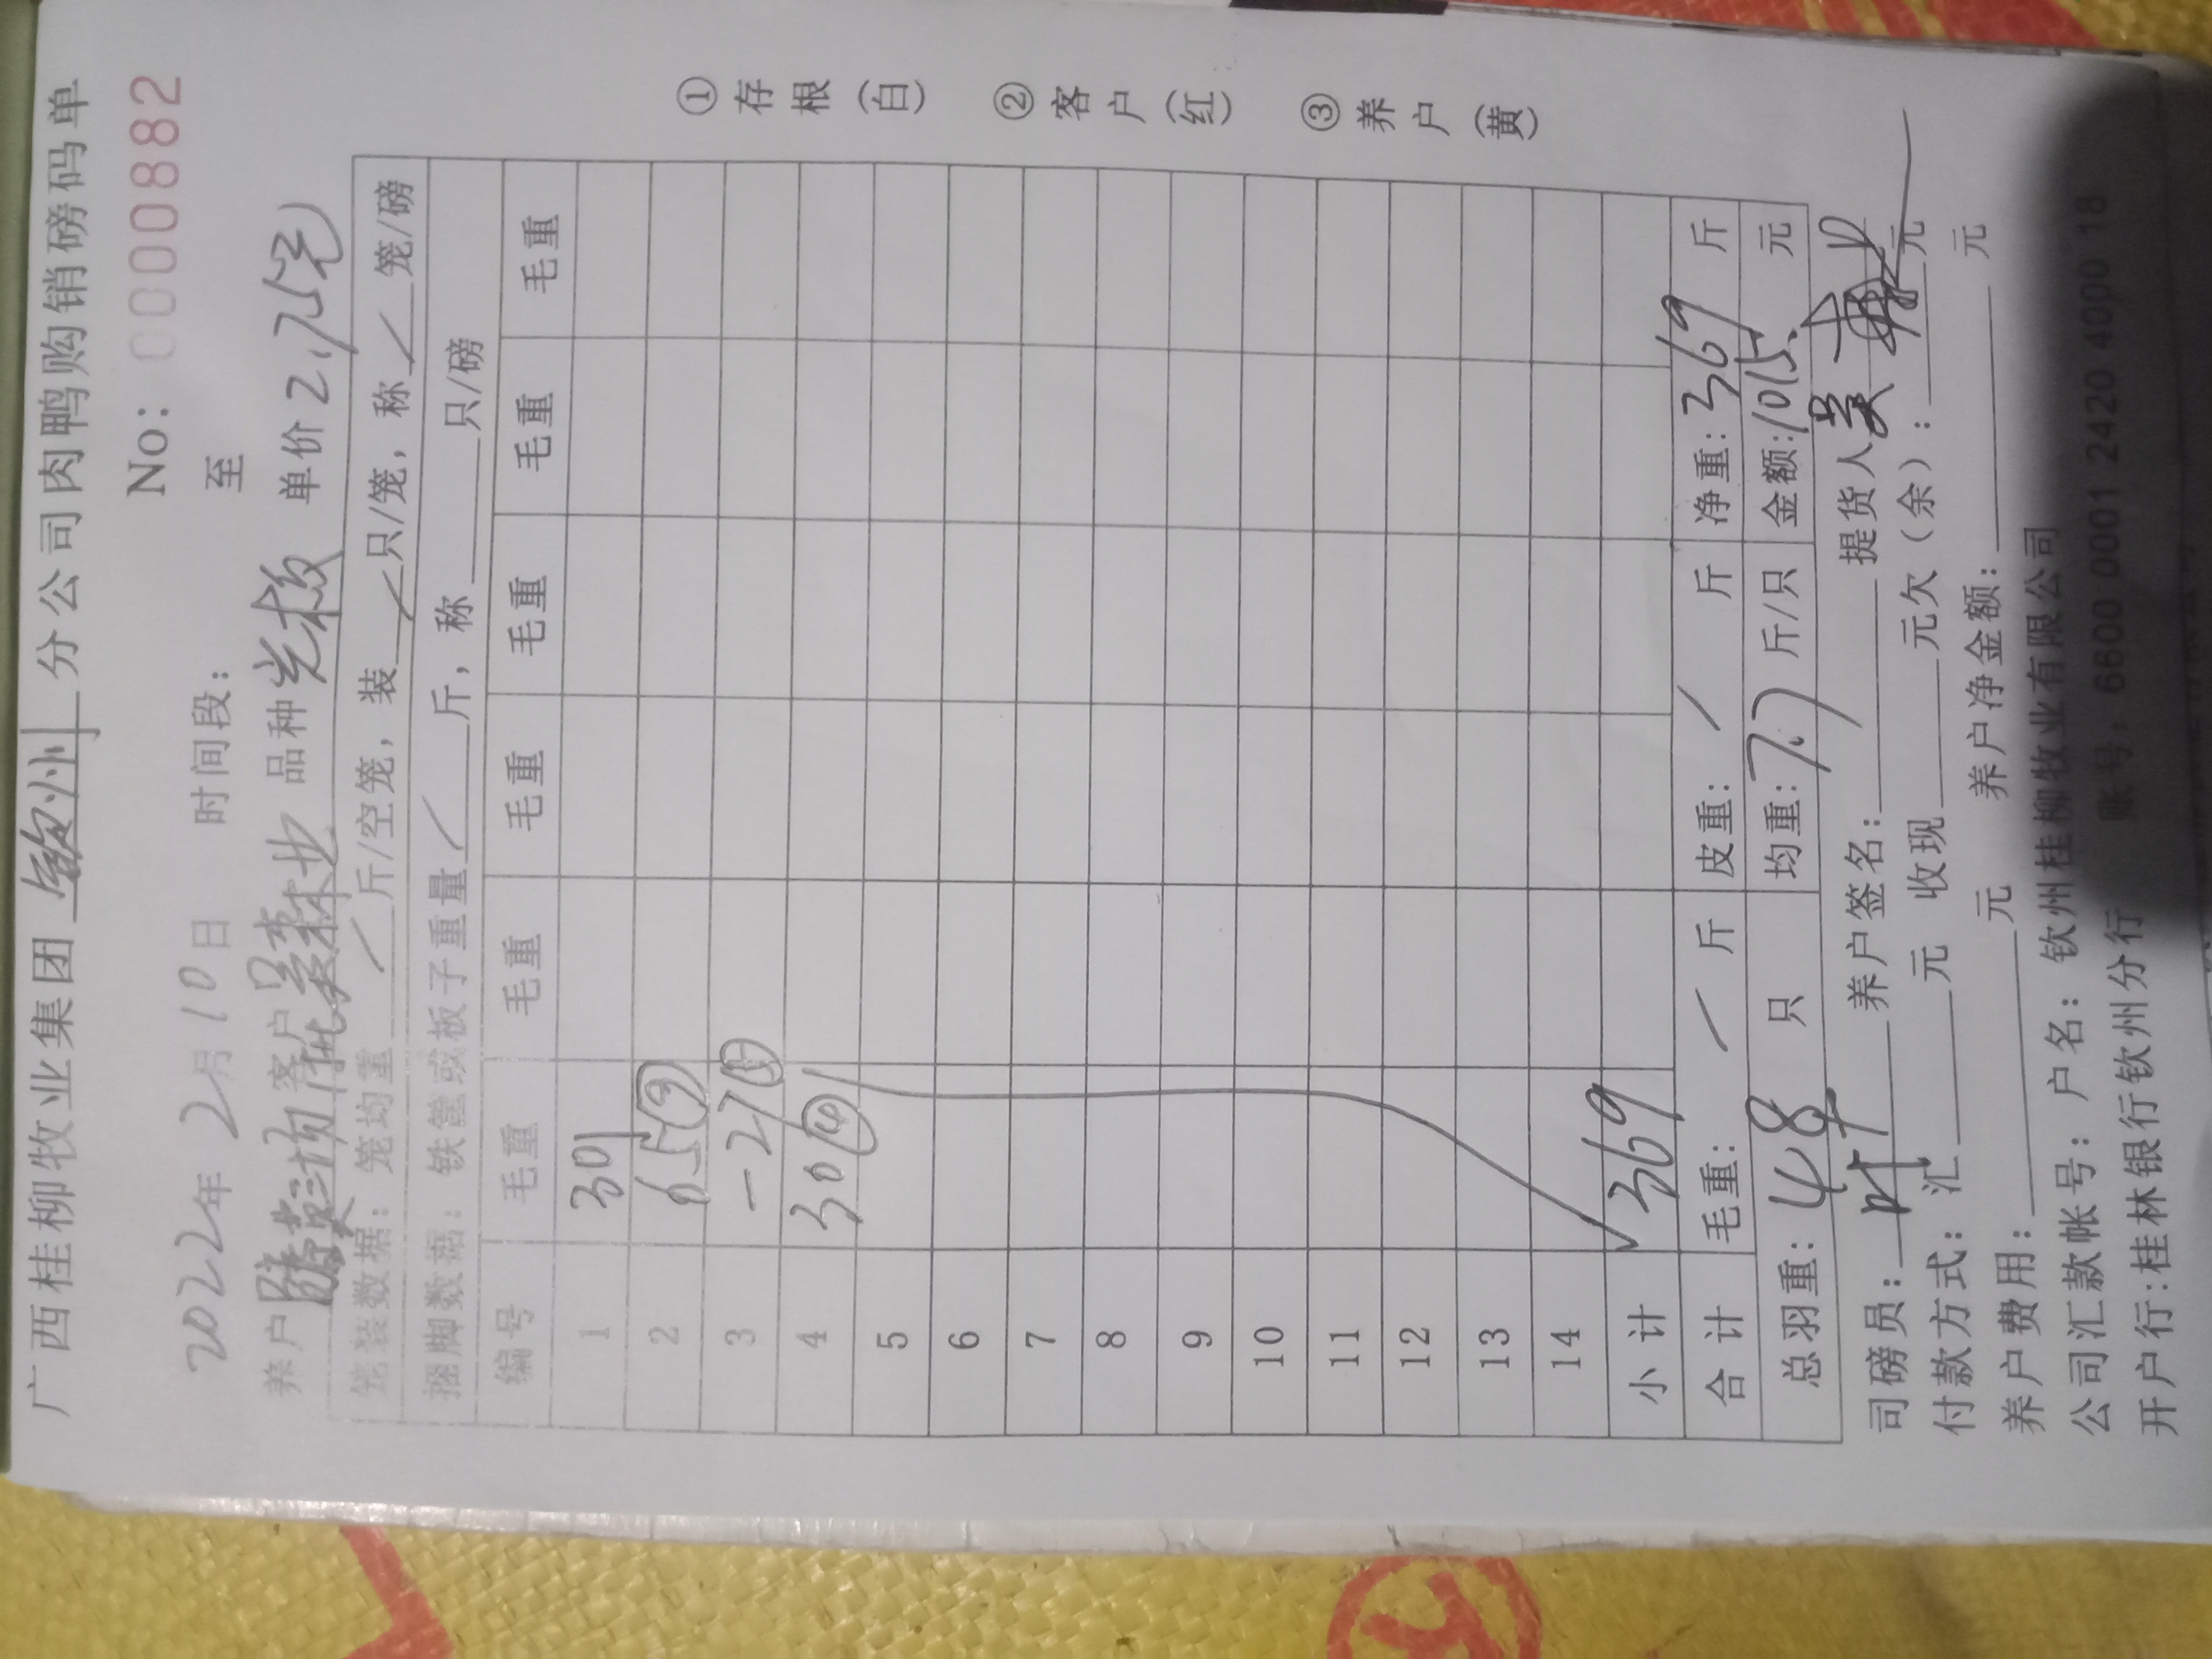 广西桂柳牧业集团 钦州 分公司肉鸭购销磅码单
No: 0000882
2022年 2月10日 时间段: 至
养户 客户 吴森业 品种 光板 单价 2.75元
笼装数据: 笼均重 / 斤/空笼, 装 / 只/笼, 称 / 笼/磅
捆脚数据: 铁筐或板子重量 / 斤, 称 只/磅
编号 毛重 毛重 毛重 毛重 毛重 毛重
1 301
2 65 ⑨
3 -27
4 30 ④
5
6
7
8
9
10
11
12
13
14
小计 369
合计 毛重: / 斤 皮重: / 斤 净重: 369 斤
总羽重: 48 只 均重: 7.7 斤/只 金额: 1015 元
司磅员: 叶 养户签名: 提货人 吴
付款方式: 汇 元 收现 元欠(余): 元
养户费用: 元 养户净金额: 元
公司汇款帐号: 户名: 钦州桂柳牧业有限公司
开户行:桂林银行钦州分行 账号: 6600 0001 2420 4000 18
①存根(白) ②客户(红) ③养户(黄)